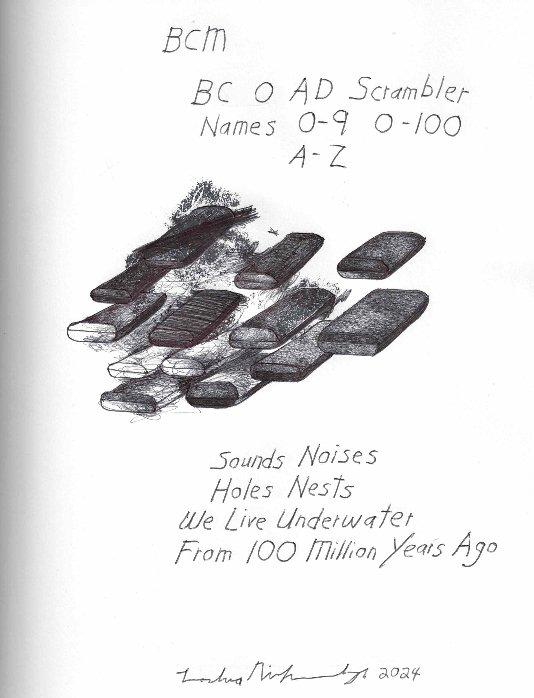 BCM
BC O AD Scrambler
Names 0-9 0-100
A-Z
Sounds Noises
Holes Nests
We Live Underwater
From 100 Million Years Ago
2024